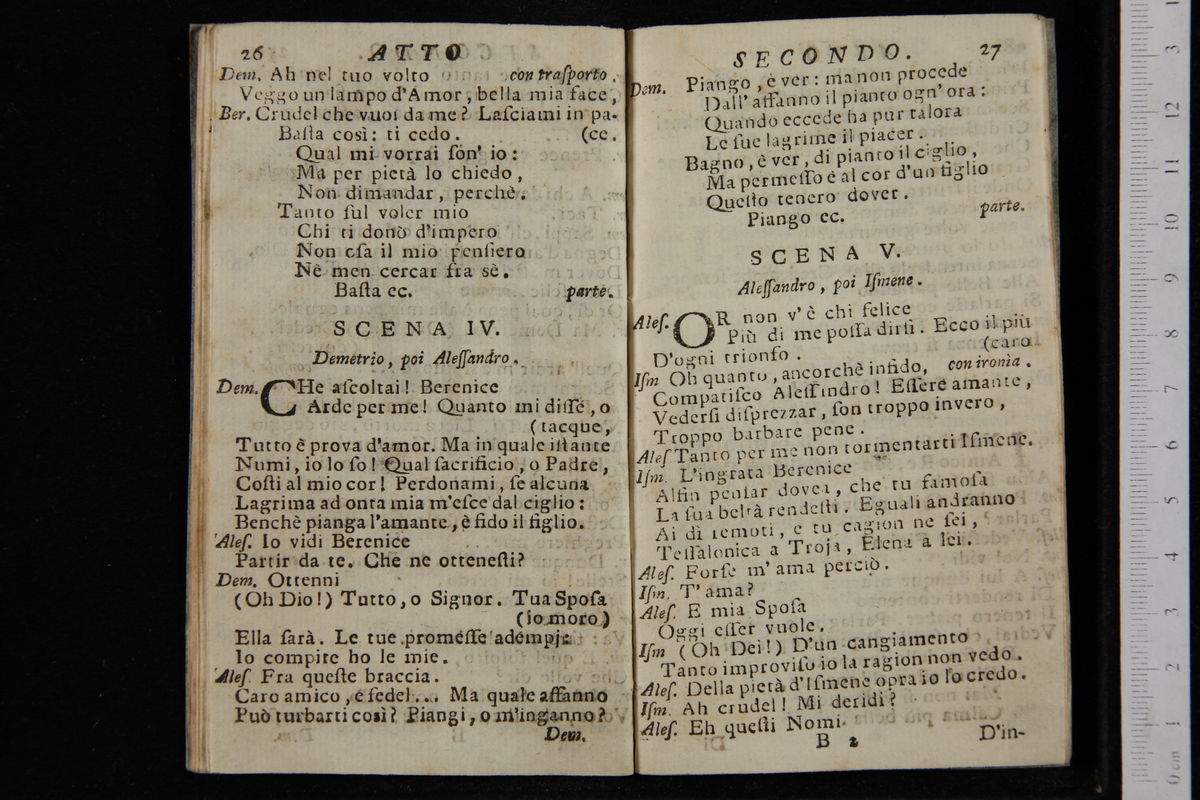 26 ATTO
Dem. Ah nel tuo volto con traſporto.
Veggo un lampo d'Amor, bella mia face,
Ber. Crudel che vuoi da me? Laſciami in pa-
Baſta così: ti cedo. (ce.
Qual mi vorrai ſon' io:
Ma per pietà lo chiedo,
Non dimandar, perchè.
Tanto ſul voler mio
Chi ti donò d'impero
Non oſa il mio penſiero
Nè men cercar fra sè.
Baſta ec. parte.
SCENA IV.
Demetrio, poi Aleſſandro.
Dem. CHe aſcoltai! Berenice
Arde per me! Quanto mi diſſe, o
(tacque,
Tutto è prova d'amor. Ma in quale iſtante
Numi, io lo ſo! Qual ſacrificio, o Padre,
Coſti al mio cor! Perdonami, ſe alcuna
Lagrima ad onta mia m'eſce dal ciglio:
Benchè pianga l'amante, è fido il figlio.
Aleſ. Io vidi Berenice
Partir da te. Che ne otteneſti?
Dem. Ottenni
(Oh Dio!) Tutto, o Signor. Tua Spoſa
(io moro)
Ella ſarà. Le tue promeſſe adempj:
Io compite ho le mie.
Aleſ. Fra queſte braccia.
Caro amico, e fedel... Ma quale affanno
Può turbarti così? Piangi, o m'inganno?
Dem.
SECONDO. 27
Dem. Piango, è ver: ma non procede
Dall' affanno il pianto ogn' ora:
Quando eccede ha pur talora
Le ſue lagrime il piacer.
Bagno, è ver, di pianto il ciglio,
Ma permeſſo è al cor d'un figlio
Queſto tenero dover.
Piango ec. parte.
SCENA V.
Aleſſandro, poi Iſmene.
Aleſ. OR non v'è chi felice
Più di me poſſa dirſi. Ecco il più
(caro
D'ogni trionfo.
Iſm Oh quanto, ancorchè infido, con ironia.
Compatiſco Aleſſandro! Eſſere amante,
Vederſi diſprezzar, ſon troppo invero,
Troppo barbare pene.
Aleſ Tanto per me non tormentarti Iſmene.
Iſm. L'ingrata Berenice
Alfin penſar dovea, che tu famoſa
La ſua beltà rendeſti. Eguali andranno
Ai dì remoti, e tu cagion ne ſei,
Teſſalonica a Troja, Elena a lei.
Aleſ. Forſe m' ama perciò.
Iſm. T' ama?
Aleſ. E mia Spoſa
Oggi eſſer vuole.
Iſm (Oh Dei!) D'un cangiamento
Tanto improviſo io la ragion non vedo.
Aleſ. Della pietà d'Iſmene opra io lo credo.
Iſm. Ah crudel! Mi deridi?
Aleſ. Eh queſti Nomi
B 2 D'in-
0 cm 1 2 3 4 5 6 7 8 9 10 11 12 3